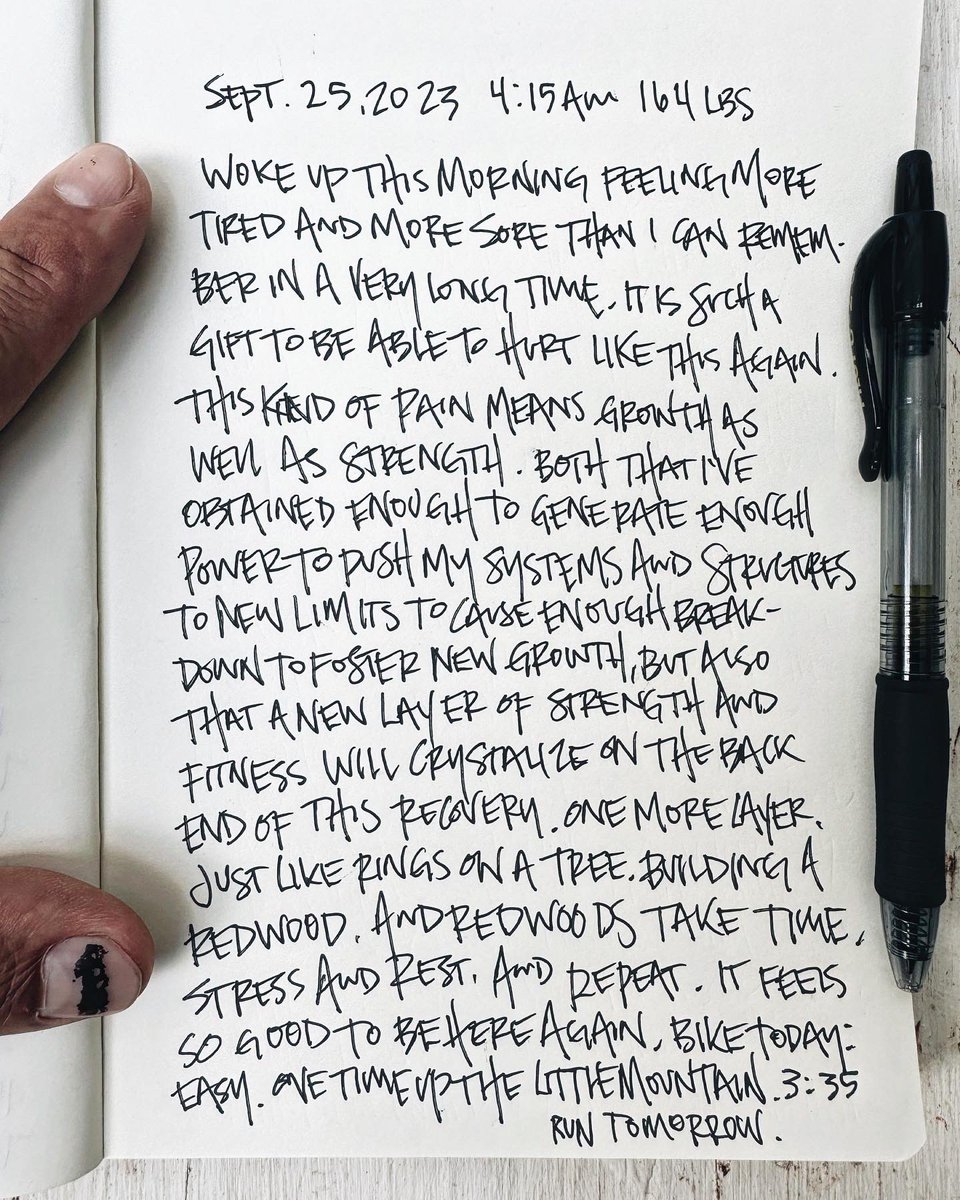 SEPT. 25, 2023 4:15AM 164 LBS
WOKE UP THIS MORNING FEELING MORE
TIRED AND MORE SORE THAN I CAN REMEM-
BER IN A VERY LONG TIME. IT IS SUCH A
GIFT TO BE ABLE TO HURT LIKE THIS AGAIN.
THIS KIND OF PAIN MEANS GROWTH AS
WELL AS STRENGTH. BOTH THAT I'VE
OBTAINED ENOUGH TO GENERATE ENOUGH
POWER TO PUSH MY SYSTEMS AND STRUCTURES
TO NEW LIMITS TO CAUSE ENOUGH BREAK-
DOWN TO FOSTER NEW GROWTH, BUT ALSO
THAT A NEW LAYER OF STRENGTH AND
FITNESS WILL CRYSTALIZE ON THE BACK
END OF THIS RECOVERY. ONE MORE LAYER.
JUST LIKE RINGS ON A TREE. BUILDING A
REDWOOD. AND REDWOODS TAKE TIME.
STRESS AND REST. AND REPEAT. IT FEELS
SO GOOD TO BE HERE AGAIN. BIKE TODAY:
EASY. ONE TIME UP THE LITTLE MOUNTAIN. 3:35
RUN TOMORROW.